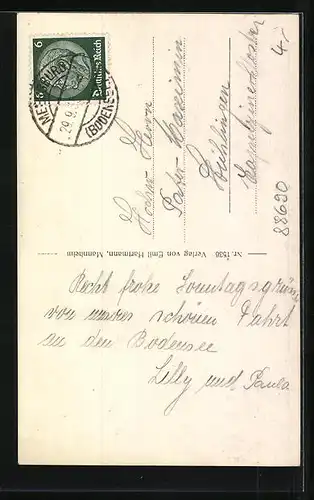 6 6
Deutsches Reich
MEERSBURG
29.9.
(BODENSEE)
Hochw. Herrn
Pater Maximin
Kapuzinerkloster
4.-
88690
Nr. 1536 Verlag von Emil Hartmann, Mannheim
Recht frohe Sonntagsgrüsse
von unsrer schönen Fahrt
an den Bodensee
Lilly und Paula